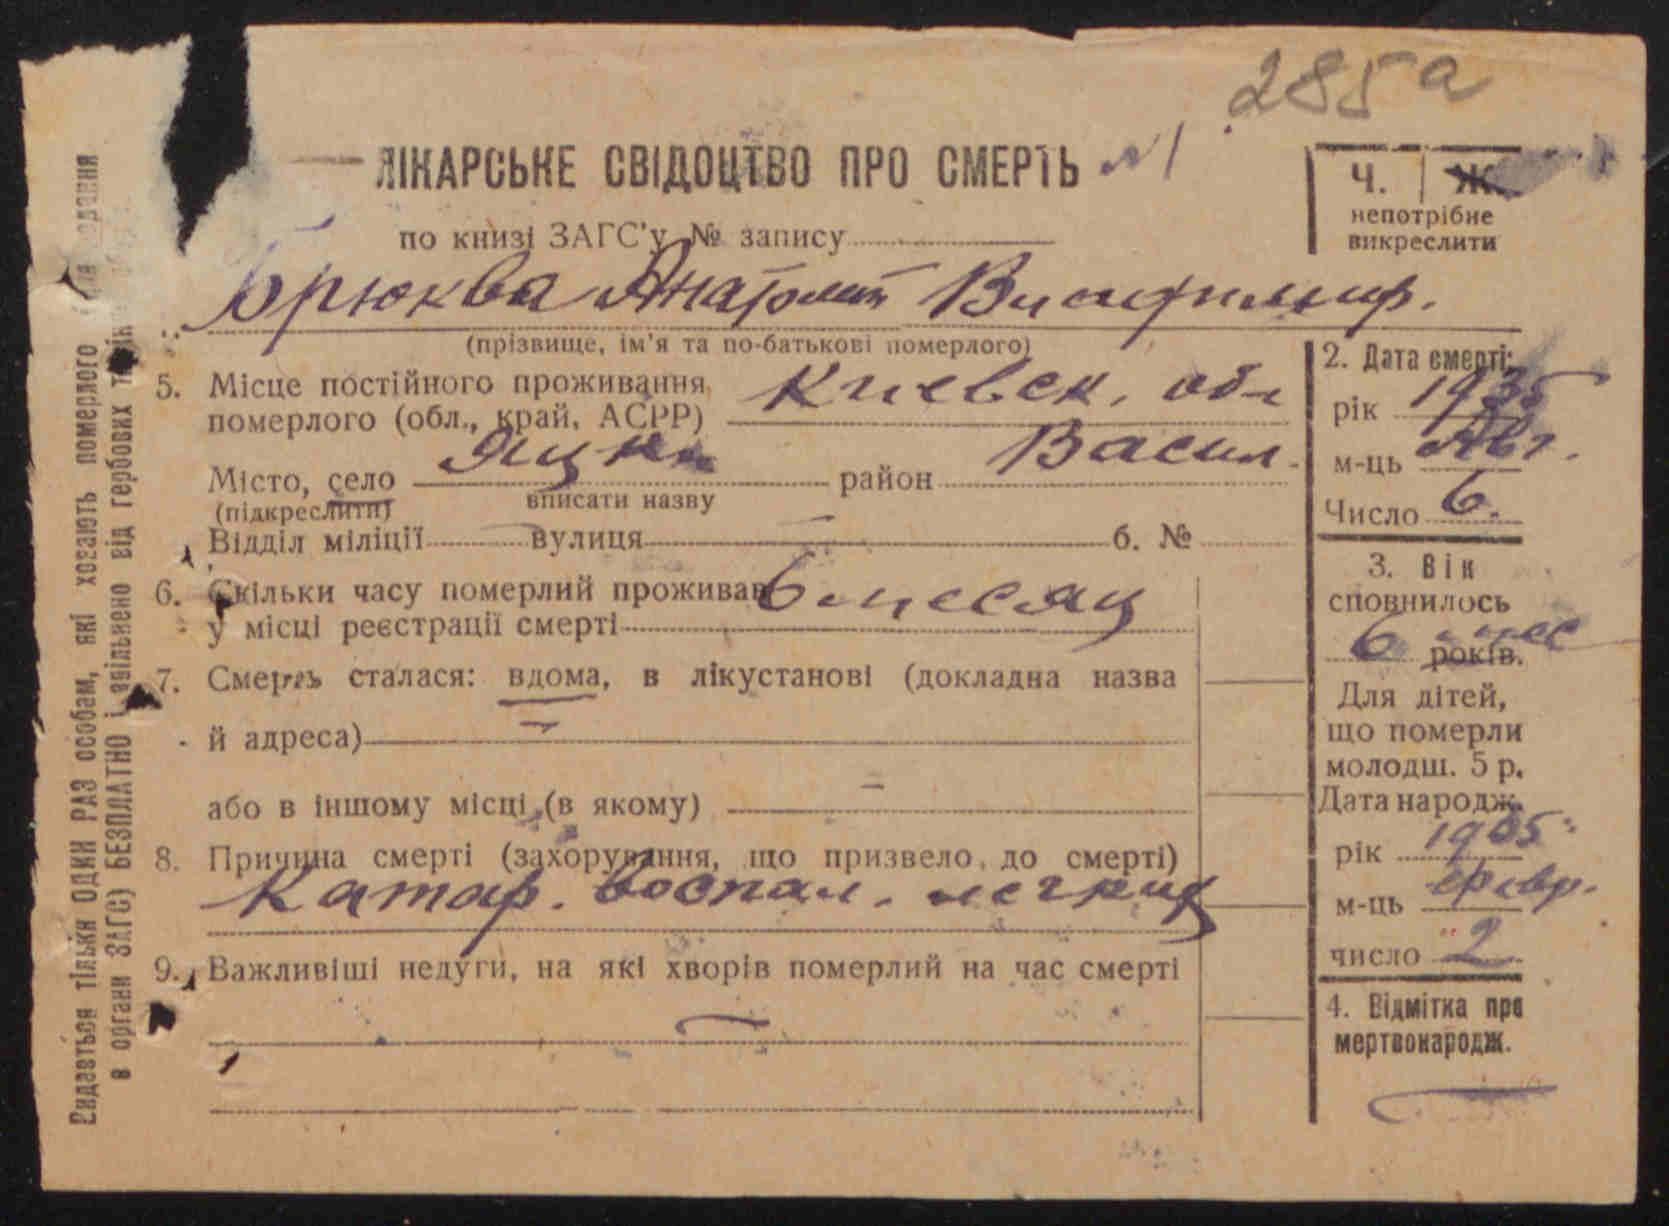 285а
ЛІКАРСЬКЕ СВІДОЦТВО ПРО СМЕРТЬ №1
по книзі ЗАГС'у № запису
Ч. | Ж.
непотрібне
викреслити
Брюква Анатолий Владимир.
(прізвище, ім'я та по-батькові померлого)
5. Місце постійного проживання
померлого (обл., край, АСРР) Киевск. обл
Місто, село Яцки район Васил.
(підкреслити) вписати назву
Відділ міліції вулиця б. №
6. Скільки часу померлий проживав 6 месяц
у місці реєстрації смерті
7. Смерть сталася: вдома, в лікустанові (докладна назва
й адреса)
або в іншому місці (в якому)
8. Причина смерті (захорування, що призвело до смерті)
Катар. воспал. легких
9. Важливіші недуги, на які хворів померлий на час смерті
2. Дата смерті:
рік 1935
м-ць Авг.
Число 6.
3. Вік
сповнилось
6 мес
років.
Для дітей,
що померли
молодш. 5 р.
Дата народж.
рік 1935
м-ць февр.
число 2
4. Відмітка про
мертвонародж.
Видається тільки ОДИН РАЗ особам, які ховають померлого
в органи ЗАГС) БЕЗПЛАТНО і звільнено від гербових